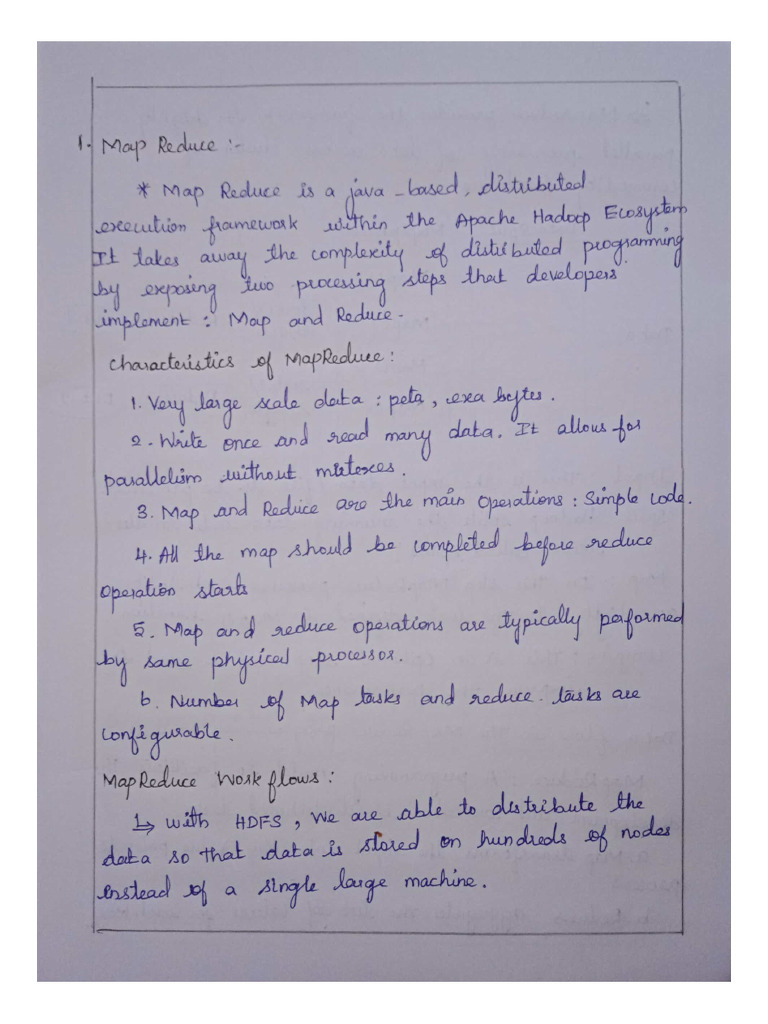 1. Map Reduce :-
* Map Reduce is a java-based, distributed
execution framework within the Apache Hadoop Ecosystem
It takes away the complexity of distributed programming
by exposing two processing steps that developers
implement : Map and Reduce.
Characteristics of MapReduce :
1. Very large scale data : peta, exa bytes.
2. Write once and read many data. It allows for
parallelism without mutexes.
3. Map and Reduce are the main operations : Simple code.
4. All the map should be completed before reduce
operation starts
5. Map and reduce operations are typically performed
by same physical processor.
6. Number of Map tasks and reduce tasks are
configurable.
MapReduce Work flows :
1↳ with HDFS, We are able to distribute the
data so that data is stored on hundreds of nodes
instead of a single large machine.